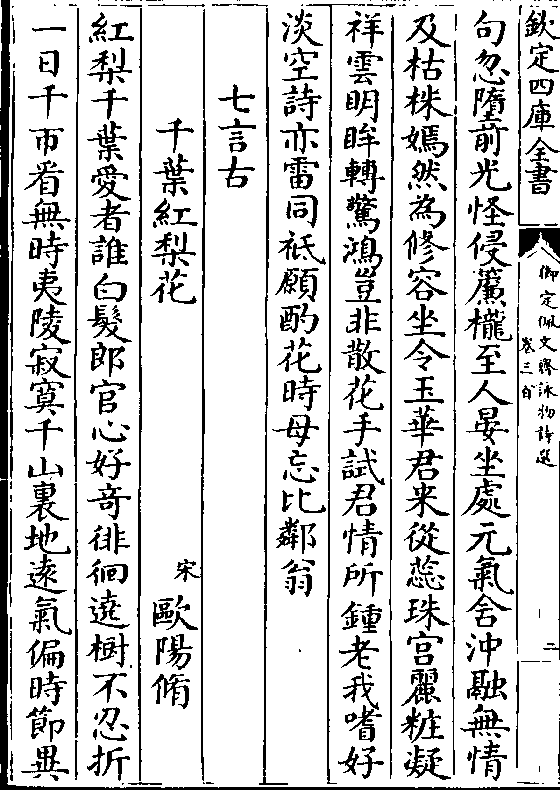 欽定四庫全書
御定佩文齋詠物詩選
卷三百
二
句忽墮前光怪侵簾櫳至人晏坐處元氣舍沖融無情
及枯株嫣然為修容坐令玉華君来從蕊珠宮麗粧凝
祥雲明眸轉驚鴻豈非散花手試君情所鍾老我嗜好
淡空詩亦雷同祗願酌花時毋忘比鄰翁
七言古
千葉紅梨花
宋
歐陽脩
紅梨千葉愛者誰白髮郎官心好奇徘徊遶樹不忍折
一日千帀看無時夷陵寂寞千山裏地遠氣偏時節異